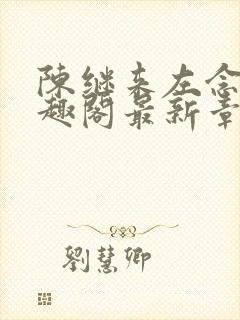 陳继来左念
趣閣最新章
劉慧卿